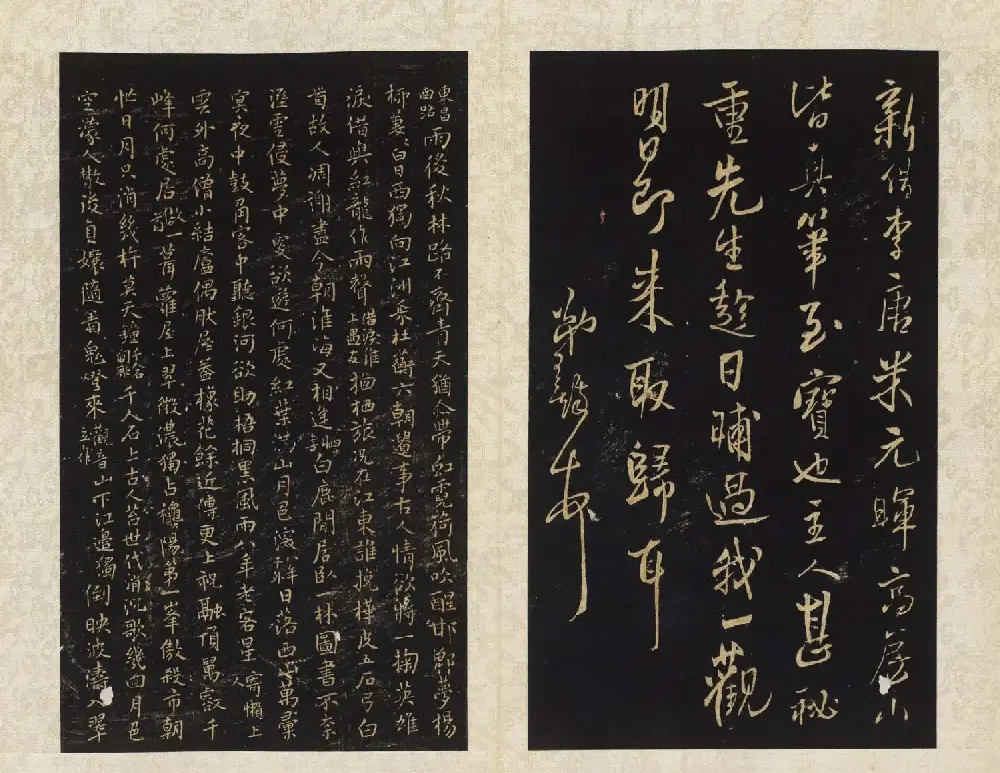 新借李唐米元暉高房山
皆真筆至寶也主人甚秘
重先生趁日晡過我一觀
明日即来取歸耳
東昌西路
雨後秋林路不齊青天猶合帶虹霓荷風吹醒邯鄲夢楊
柳萋萋日日西獨向江洲采杜蘅六朝遺事古人情欲將一掬英雄
淚借與紅龍作雨聲 栖栖旅况在江東誰挽樺皮五石弓白
首故人凋謝盡今朝淮海又相逢 白鹿閒居臥一林圖書不奈
溼雲侵夢中愛欲遊何處紅葉 山月色深 日落西 萬彙
冥夜中鼓角客中聽銀河欲助梧桐黑風雨八年老客星 寄懶上人
雲外高僧小結廬偶肰屋蓄橡花餘近傳更上祝融頂萬壑千
峰何處居 一胷蘿屋上翠微濃獨占 陽第一峯傲殺市朝
忙日月只消幾杵莫天鐘 千人石上古人苔世代消沉歌幾 四月邑
空濛人散後自孃隨看鬼燈來 觀音山下江邊獨立作 倒映波濤入翠